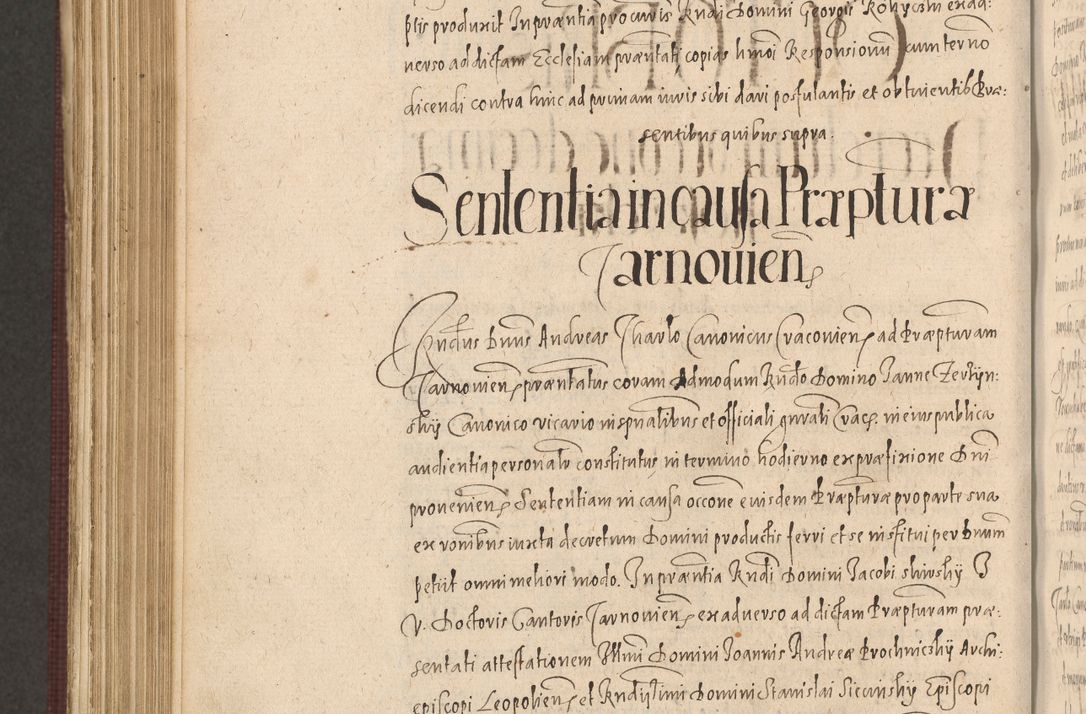 ptis produxit In præntia procuris Rndi Domini Georgii Rohyczin exad:
verso ad dictam Ecclesiam præntati copias hmoi Responsionū cum terno
dicendi contra hinc ad primam iuris sibi dari postulantis et obtinentis Præ:
sentibus quibus supra.
Sententia in causa Præptura
Tarnouien
Rndus Dnus Andreas Tharlo Canonicus Cracovien ad Præpturam
Tarnovien præntatus coram Admodum Rndo Domino Janne
shÿ Canonico vicario in spualibus et officiali gnrali Crac. in eius publica
audientia personalr constitutus in termino hodierno ex præfixione Dni
provenien Sententiam in causa occone eiusdem Præpturæ pro parte sua
ex ronibus iuxta decretum Domini productis ferri et se institui per Dnum
petiit omni meliori modo. In præntia Rndi Domini Jacobi J
V. Doctoris Cantoris Tarnovien ex adverso ad dictam Præpturam præ:
sentati attestationem Illmi Domini Joannis Andreæ Prochnicshÿ Archi:
episcopi Leopolien et Rndissimi Domini Stanislai Siecinshÿ Episcopi